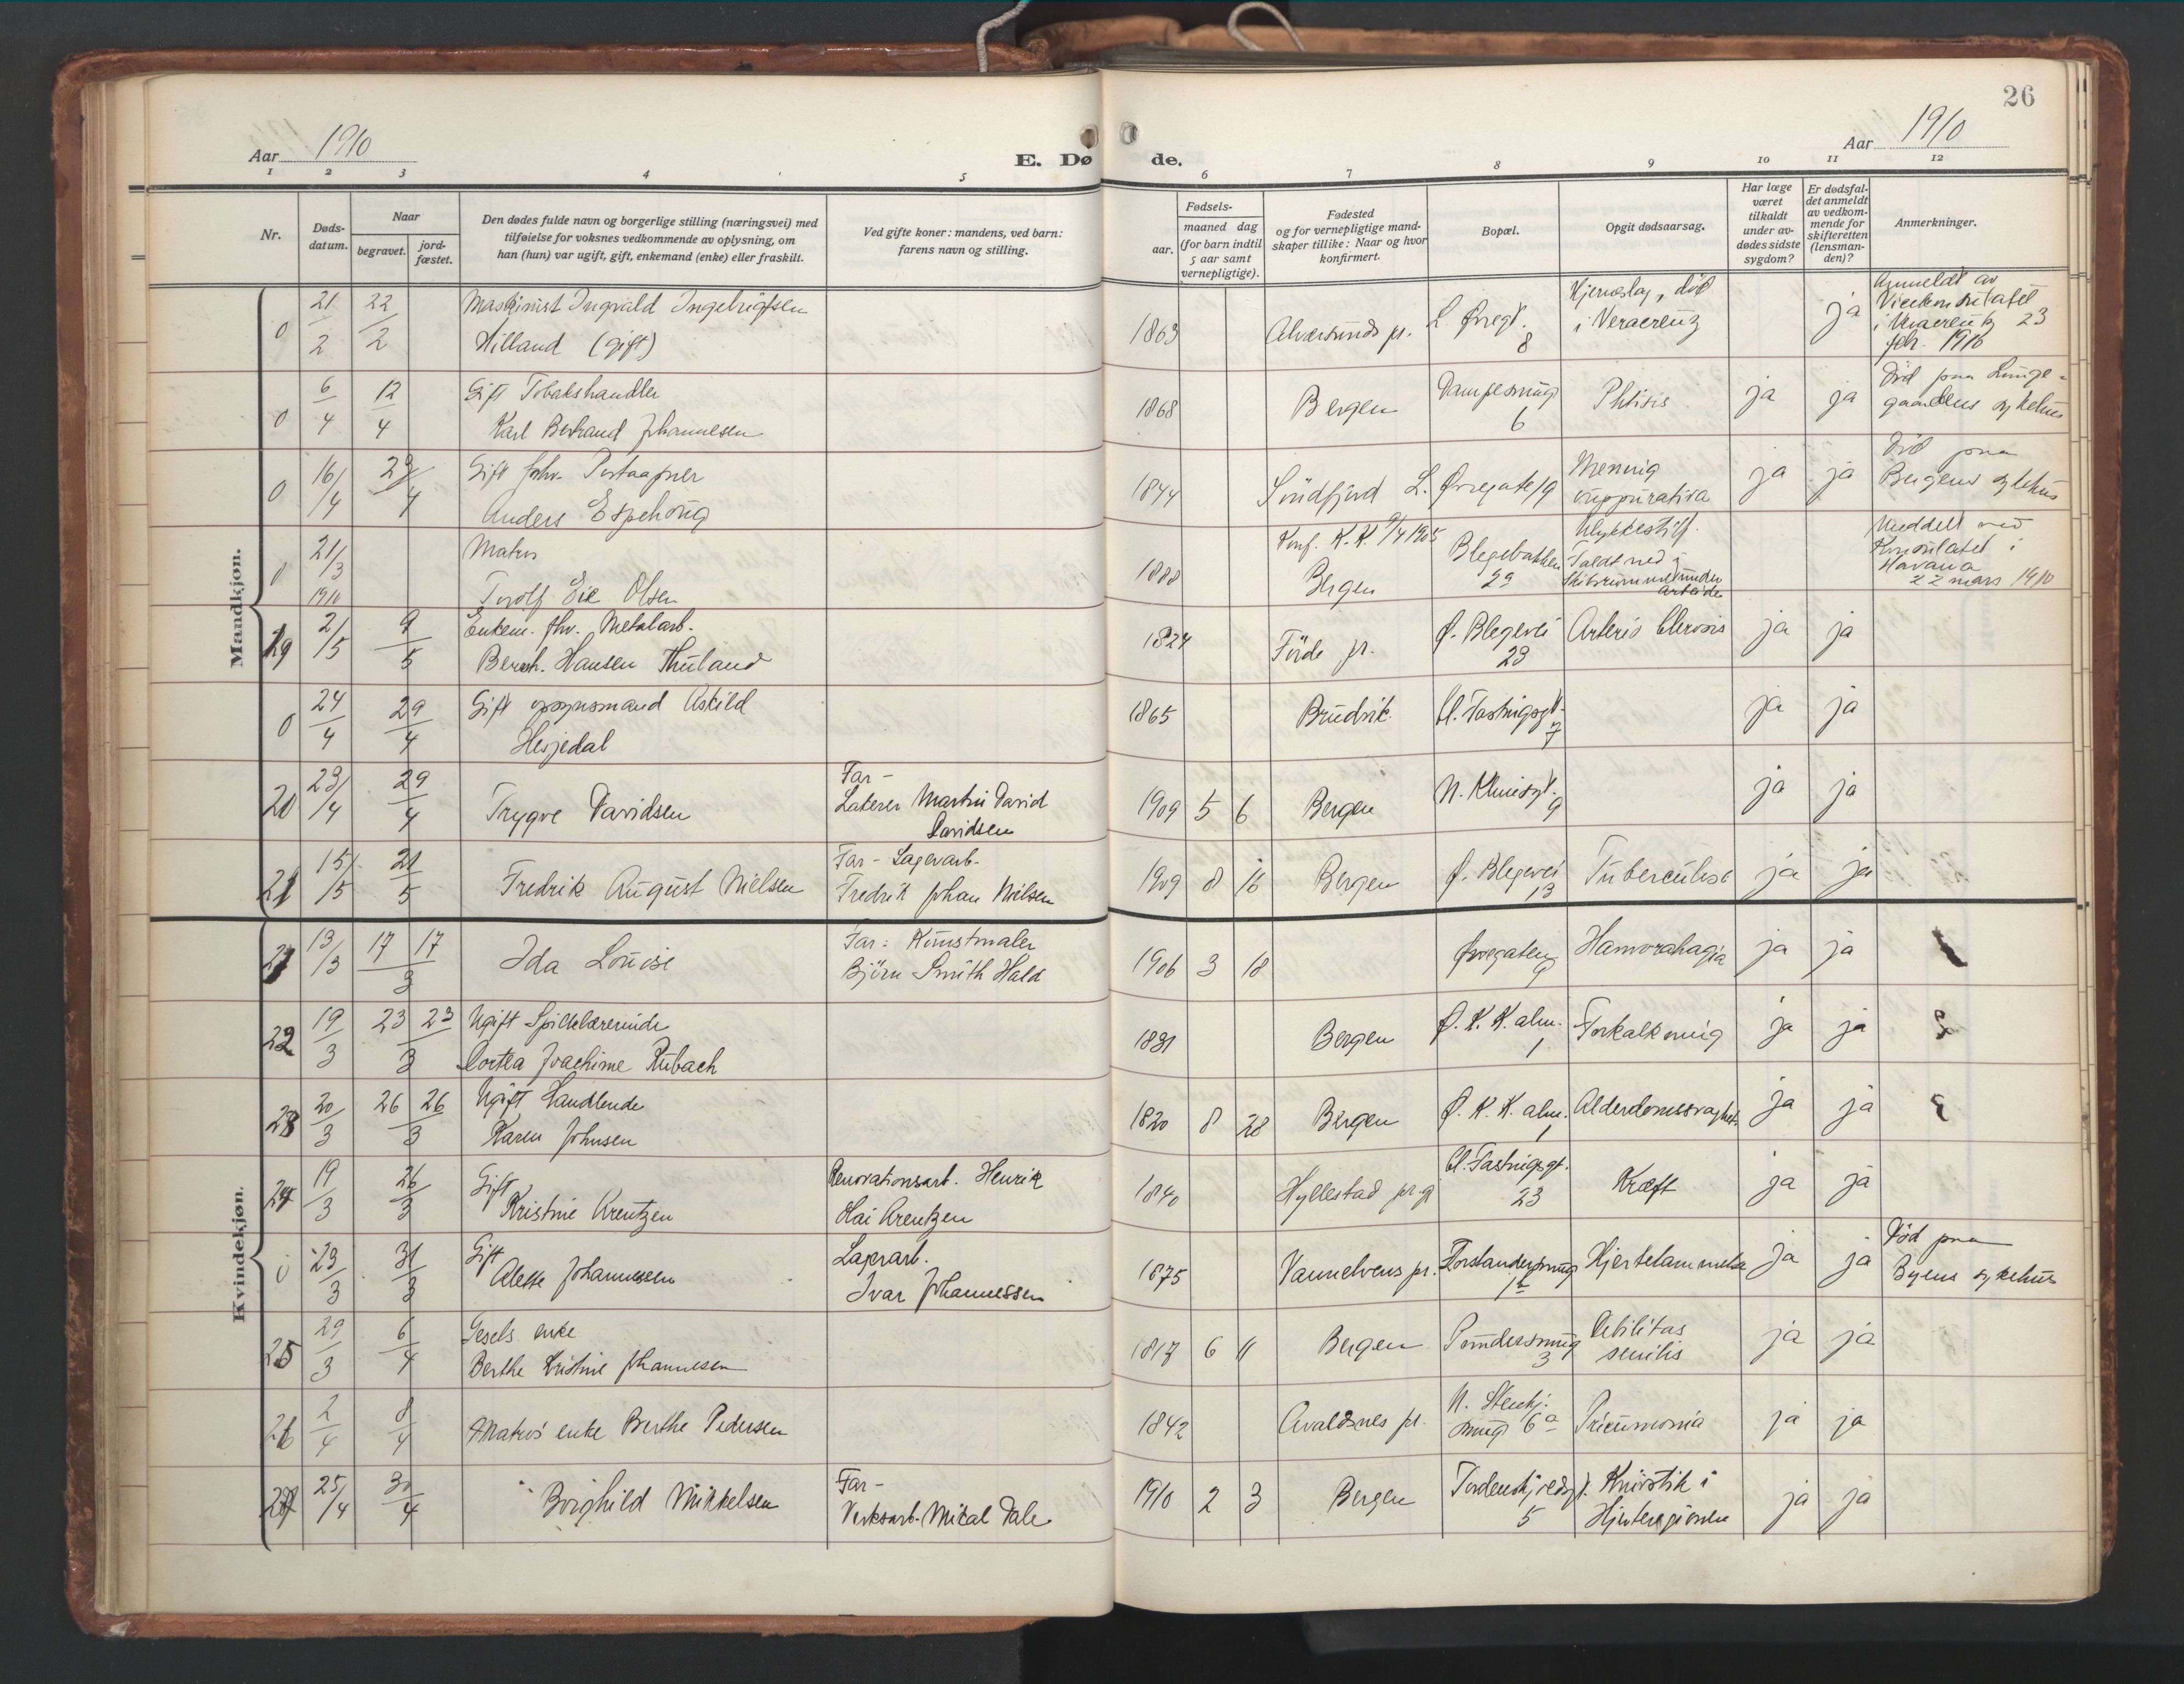 26
Aar 1910
E. Dø
de.
Aar 1910
1 2 3 4 5 6 7 8 9 10 11 12
Nr.
Døds-
datum.
Naar
begravet.
jord-
fæstet.
Den dødes fulde navn og borgerlige stilling (næringsvei) med
tilføielse for voksnes vedkommende av oplysning, om
han (hun) var ugift, gift, enkemand (enke) eller fraskilt.
Ved gifte koner: mandens, ved barn:
farens navn og stilling.
Fødsels-
aar.
maaned dag
(for barn indtil
5 aar samt
vernepligtige).
Fødested
og for vernepligtige mand-
skaper tillike: Naar og hvor
konfirmert.
Bopæl.
Opgit dødsaarsag.
Har læge
været
tilkaldt
under av-
dødes sidste
sygdom?
Er dødsfal-
det anmeldt
av vedkom-
mende for
skifteretten
(lensman-
den)?
Anmerkninger.
Mandkjøn.
0 21/2 22/2 Maskinist Ingvald Ingebrigtsen
Hilland (gift)
1863 Alversunds pr. L. Øvregt. 8
Hjerneslag, død
i Veracruz
ja
Anmeldt av
Vicekonsulatet
i Veracruz 23
febr. 1910
0 6/4 12/4 Gift Tobakshandler
Karl Bertrand Johannesen
1868 Bergen Dampesmug 6 Phtisis ja ja
Død paa Lunge-
gaardens sykehus
0 16/4 23/4 Gift fhv. Postaapner
Anders Espehoug
1844 Søndfjord L. Øvregate 19
Mening
suppurativa
ja ja
Død paa
Bergens sykehus
0 21/3 1910 Matros
Torolf Eie Olsen
1888 Konf. K.K. 9/4 1905
Bergen
Blegebakken 29
Ulykkestilf.
Faldt ned i
Skibsrummet under
arbeide
Meddelt ved
Konsulatet i
Havana
22 mars 1910
19 2/5 9/5 Enkem. fhv. Metalarb.
Bernh. Hansen Thuland
1824 Førde pr. Ø. Blegevei 23 Arterio sclerosis ja ja
0 24/4 29/4 Gift opsynsmand Askild
Hesjedal
1865 Brudvik Cl. Fastingsgt. 7 ja ja
20 23/4 29/4 Trygve Davidsen
Far -
Laterer Martin David
Davidsen
1909 5 6 Bergen N. Klinegt. 9 ja ja
21 15/5 21/5 Fredrik August Nielsen
Far - Lagerarb.
Fredrik Johan Nielsen
1909 8 16 Bergen Ø. Blegevei 13 Tuberculose ja ja
Kvindekjøn.
21 13/3 17 17/3 Ida Louise
Far: Kunstmaler
Bjørn Smith Hald
1906 3 18 Øvregaten 9 Hamorahagia ja ja
22 19/3 23 23/3 Ugift Spillelærerinde
Dortea Joachime Rubach
1831 Bergen Ø. K. K. alm. 1 Forkalkning ja ja
23 20/3 26 26/3 Ugift Handlende
Karen Johnsen
1820 8 28 Bergen Ø. K. K. alm. 1 Alderdomssvaghet. ja ja
24 19/3 26/3 Gift
Kristine Arentzen
Renovationsarb. Henrik
Hai Arentzen
1840 Hyllestad pr.gj Cl. Fastingsgt. 23 Kræft ja ja
0 23/3 31/3 Gift
Alette Johannessen
Lagerarb.
Ivar Johannessen
1875 Vannelvens pr. Forstandersmug 1a Hjertelammelse ja ja
Død paa
Byens sykehus
25 29/3 6/4 Gesels enke
Berthe Kristine Johannesen
1817 6 11 Bergen Pundersmug 3
Debilitas
senilis
ja ja
26 2/4 8/4 Matros enke Berthe Pedersen
1842 Avaldsnes pr.
N. Stenkj.
smug 6a
Pneumonia ja ja
27 25/4 30/4 Borghild Mikkelsen
Far -
Verksarb. Mikal Dale
1910 2 3 Bergen Tordenskjoldsgt. 5
Knivstik i
Hjerteregionen
ja ja